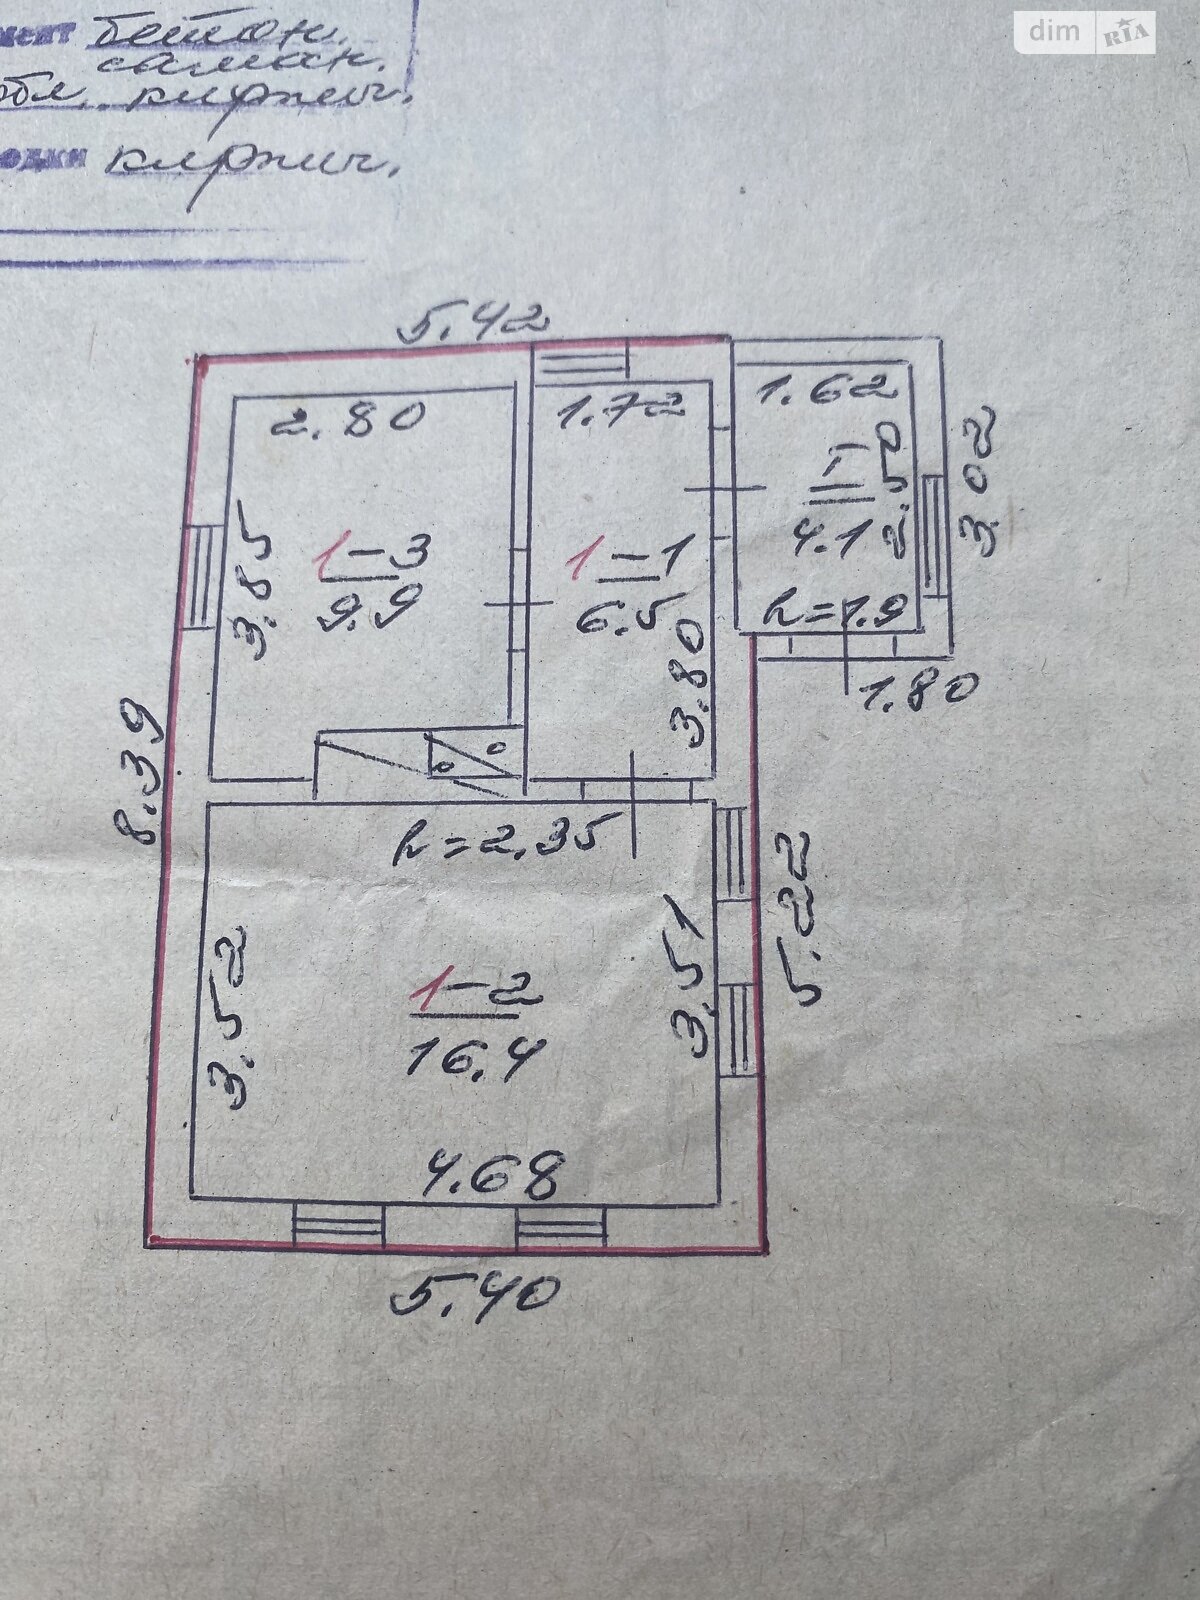 dim RIA
мент бетон.
саман.
обл. кирпич.
одки кирпич.
5.42
2.80
1.72
1.62
3.85
1-3
9.9
1-1
6.5
3.80
I
4.1
2.50
3.02
h=1.9
1.80
8.39
h=2.35
3.52
1-2
16.4
3.51
5.22
4.68
5.40